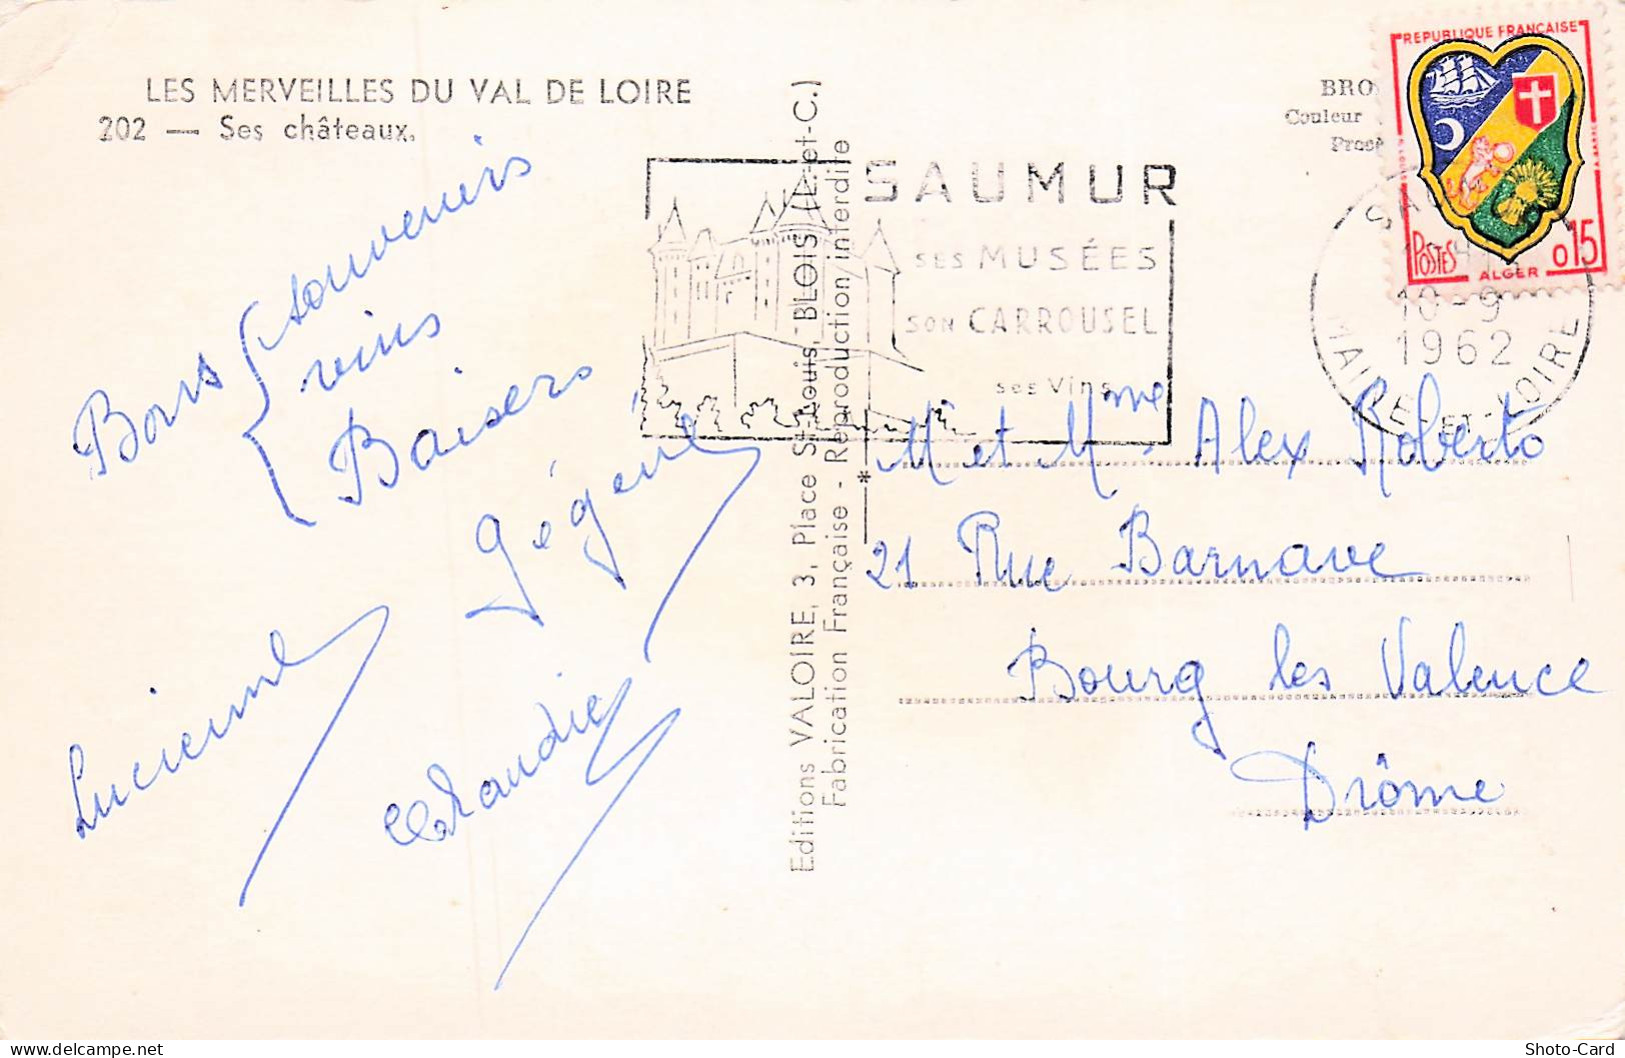 LES MERVEILLES DU VAL DE LOIRE
202 — Ses châteaux.
Bons { souvenirs
vins
Baisers
Gégène
Lucienne
Claudie
Editions VALOIRE, 3, Place St-Louis, BLOIS (L.-et-C.)
Fabrication Française - Reproduction interdite
SAUMUR
ses MUSÉES
son CARROUSEL
ses Vins
BRO
Couleur
REPUBLIQUE FRANÇAISE
POSTES
ALGER
0,15
10-9
1962
MAINE-ET-LOIRE
Mr et Mme Alex Roberto
21 Rue Barnave
Bourg les Valence
Drôme
delcampe.net
Shoto-Card